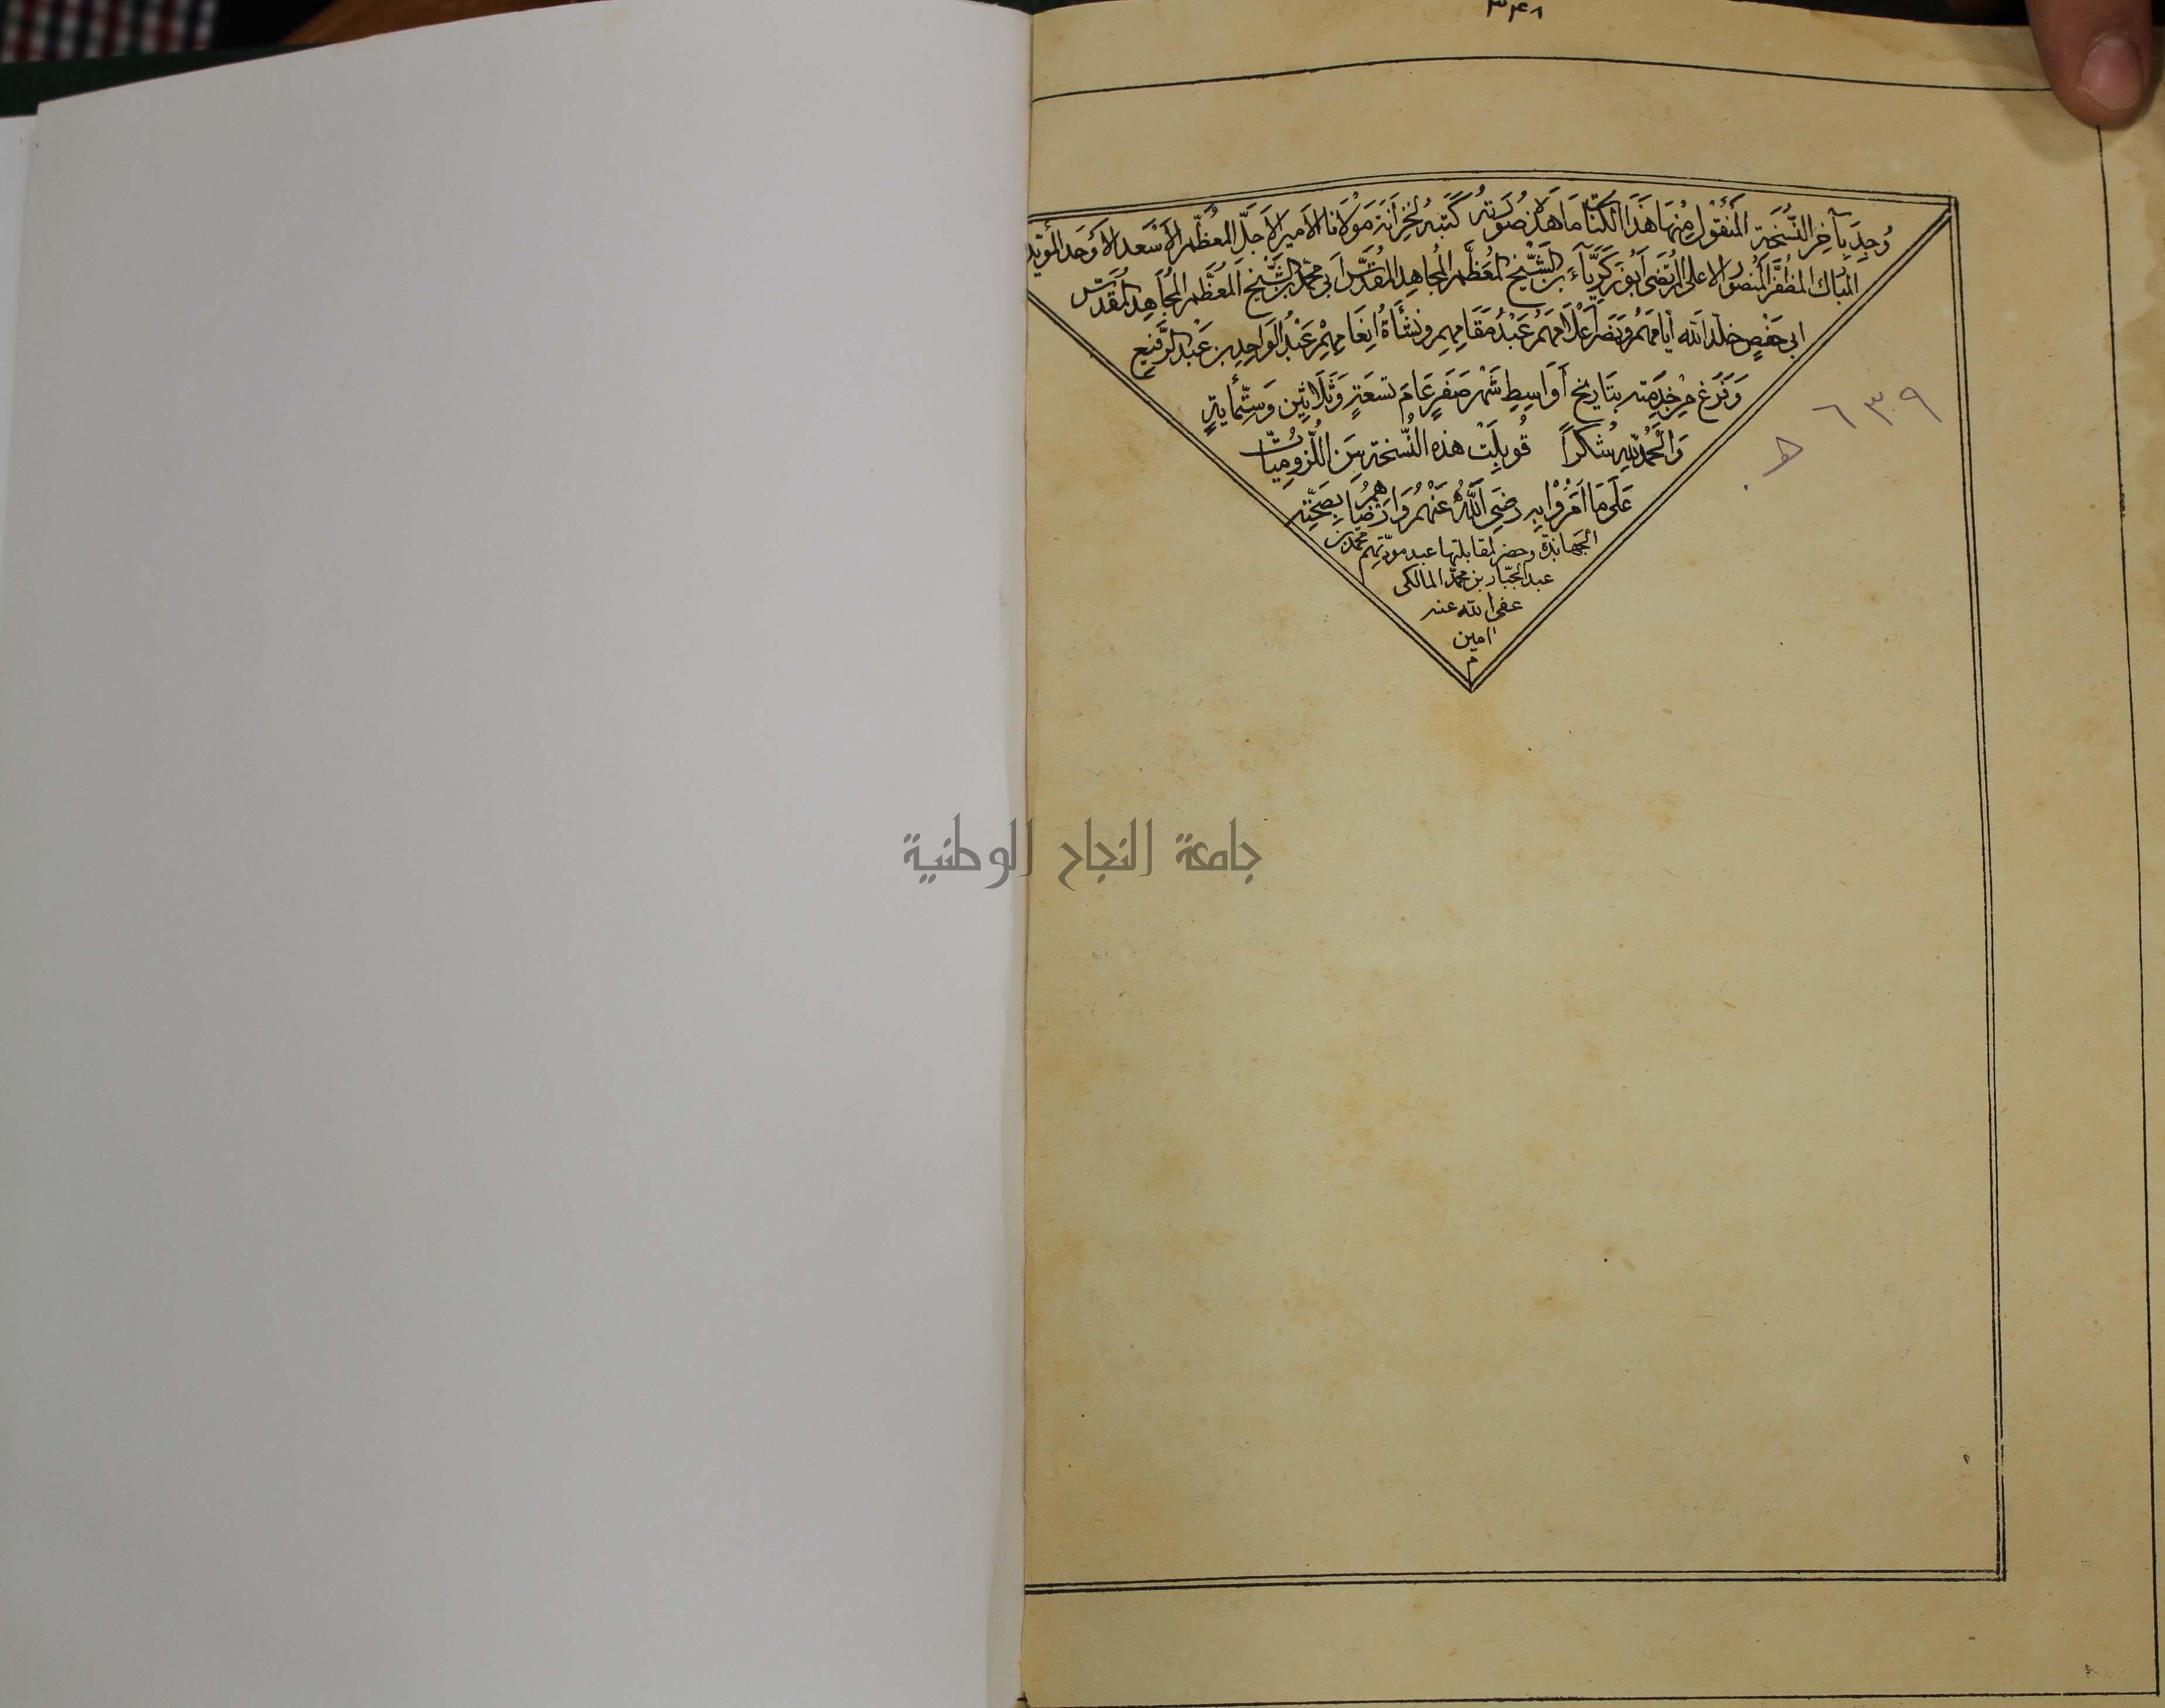 ٣٤٨
وُجِدَ بِآخِرِ النُّسْخَةِ الْمَنْقُولِ مِنْهَا هَذَا الكِتَابُ مَا هَذَا صُورَتُهُ كَتَبَهُ لِخِزَانَةِ مَوْلَانَا الأَمِيرِ الأَجَلِّ المُعَظَّمِ الأَسْعَدِ الأَوْحَدِ المُؤَيَّدِ
المُبَارَكِ المُظَفَّرِ المَنْصُورِ الاعلى المُرْتَضَى أَبُو زَكَرِيَّاءَ بْنِ الشَّيْخِ المُعَظَّمِ المُجَاهِدِ المُقَدَّسِ أَبِي مُحَمَّدِ بْنِ الشَّيْخِ المُعَظَّمِ المُجَاهِدِ المُقَدَّسِ
ابي حَفْصٍ خَلَّدَ اللّه أَيَّامَهُمْ وَنَصَرَ أَعْلَامَهُمْ عَبْدُ مَقَامِهِمِ وَنَشْأَةُ انْعَامِهِمْ عَبْدُ الوَاحِدِ بن عَبْدِ الرَّفِيعِ
وَفَرَغَ مِنْ خِدْمَتِهِ بِتَارِيخِ أَوَاسِطِ شَهْرِ صَفَرٍ عَامَ تِسْعَةٍ وَثَلَاثِينَ وَسِتِّمِائَةٍ
وَالْحَمْدُ لِلّهِ شُكْرًا قُوبِلَتْ هَذِهِ النُّسْخَةُ مِنَ اللُّزُومِيَّاتْ
عَلَى مَا أَمَرُوا بِهِ رَضِيَ اللَّهُ عَنْهُمْ وَأَرْضَاهُمُ بِصُحْبَةِ
الجَهَابِذَةِ وحضر لمقابلتها عبد مودّتهم محمد بن
عبد الجبّار بن محمّد المالكى
عفى الله عنه
امين
م
٦٣٩
ط.
جامعة النجاح الوطنية